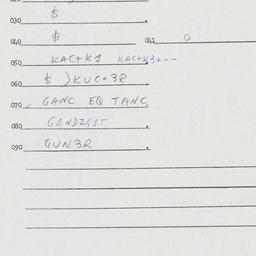 030 $ .
040 $ 041 0
050 KAC+K1 KAC+K3+--
060 $ )KUC+38 .
070 GANC EQ TANC
080 GANDZGIT .
090 GUN3R .